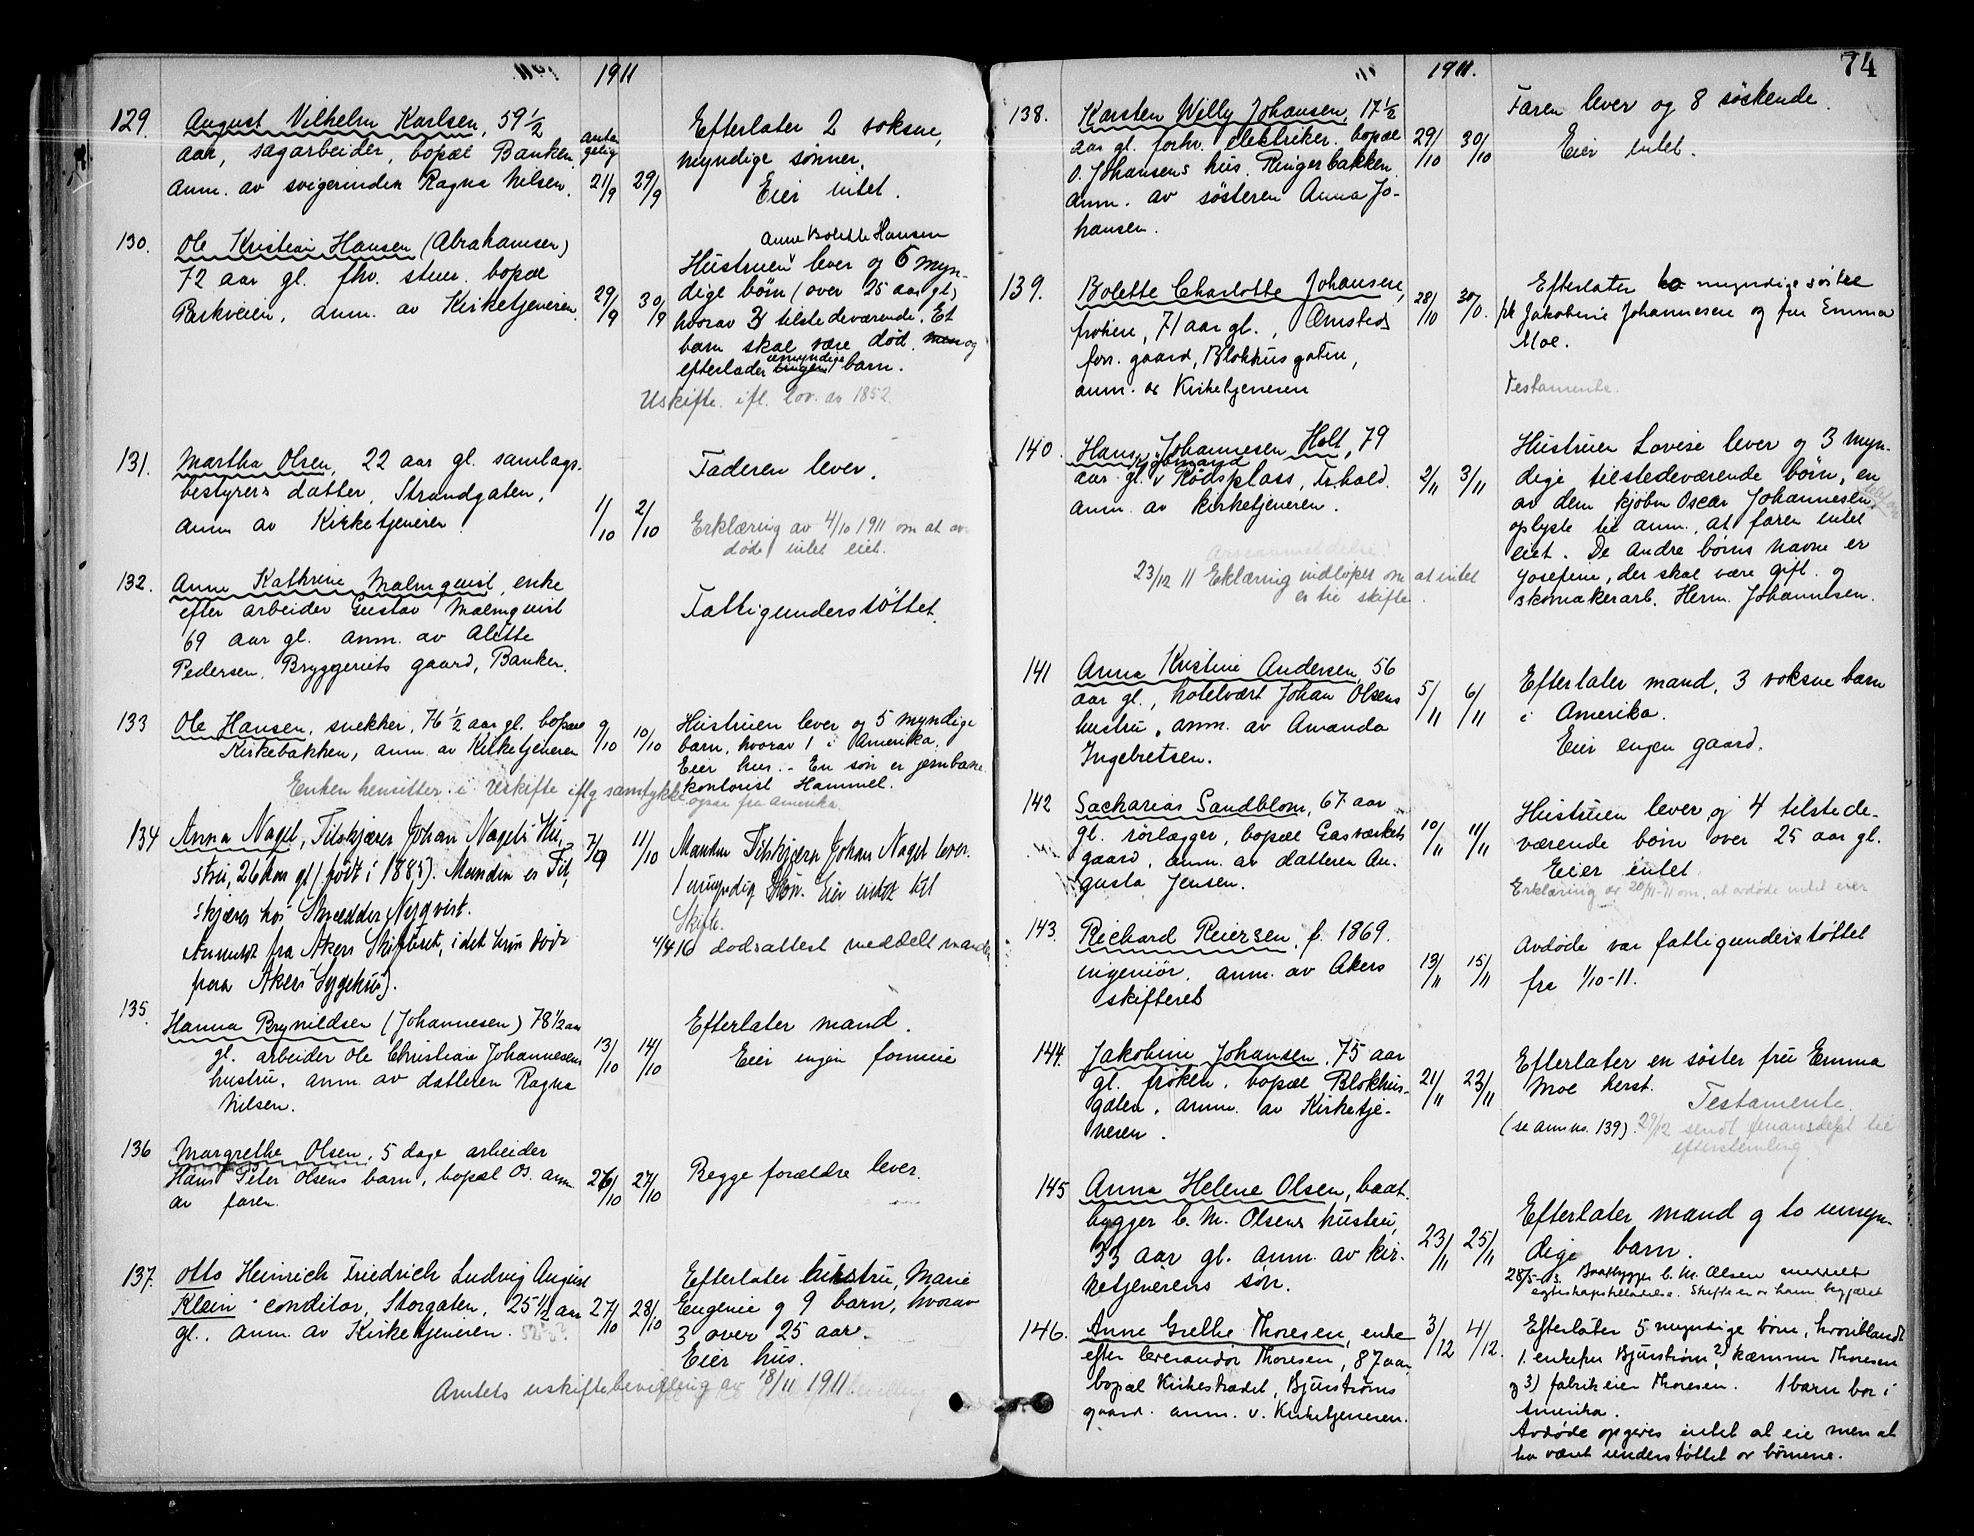 1911
129. August Vilhelm Karlsen, 59 1/2
aar, sagarbeider, bopæl Banken
anm. av svigerinden Ragna Nilsen.
anta
gelig
21/9 29/9
Efterlater 2 voksne,
myndige sønner.
Eier intet.
130. Ole Kristian Hansen (Abrahamsen)
72 aar gl. fhv. stuer. bopæl
Parkveien, anm. av Kirketjeneren.
29/9 30/9
Anne Bolette Hansen
Hustruen lever og 6 myn-
dige børn (over 25 aar gl)
hvorav 3 tilstedeværende. Et
barn skal være død men og
efterlader ingen umyndige barn.
Uskifte. ifl. lov. av 1852.
131. Martha Olsen, 22 aar gl. samlags-
bestyrers datter, Strandgaten,
anm av Kirketjeneren
1/10 2/10
Faderen lever.
Erklæring av 4/10 1911 om at av-
døde intet eiet.
132. Anne Kathrine Malmquist, enke
efter arbeider Gustav Malmquist
69 aar gl. anm. av Alette
Pedersen, Bryggeriets gaard, Banken.
Fattigunderstøttet.
133 Ole Hansen, snekker, 76 1/2 aar gl. bopæl
Kirkebakken, anm. av Kirketjeneren
9/10 10/10
Hustruen lever og 5 myndige
barn, hvorav 1 i Amerika.
Eier hus. - En søn er jernbane-
kontorist Hammel.
Enken hensitter i Uskifte iflg samtykke
ogsaa fra Amerika.
134 Anna Nagel, Tilskjærer Johan Nagels Hu-
stru, 26 Aar gl (født i 1885). Manden er Til-
skjærer hos Skrædder Nyqvist.
Anmeldt fra Akers Skifteret, i det hun døde
paa Akers Sygehus).
7/9 11/10
Manden Tilskjærer Johan Nagel lever.
1 umyndig Søn. Eier intet til
Skifte.
4/4 16 dødsattest meddelt manden
135. Hanna Brynildsen (Johannesen) 78 1/2 aar
gl. arbeider Ole Christian Johannesens
hustru, anm. av datteren Ragna
Nilsen.
13/10 14/10
Efterlater mand.
Eier ingen formue
136 Margrethe Olsen, 5 dage arbeider
Hans Peter Olsens barn, bopæl Os. anm
av faren.
26/10 27/10
Begge forældre lever.
137. Otto Heinrich Friedrich Ludvig August
Klein - conditor, Storgaten, 25 1/2 aar
gl. anm. av Kirketjeneren.
27/10 28/10
Efterlater hustru, Marie
Eugenie og 9 barn, hvorav
3 over 25 aar.
Eier hus.
Amtets uskiftebevilling av 18/11 1911
74
1911.
138. Karsten Willy Johansen, 17 1/2
aar gl. forhv. elektriker. bopæl
O. Johansens hus. Ringerbakken.
anm. av søsteren Anna Jo-
hansen.
29/10 30/10
Faren lever og 8 søskende.
Eier intet.
139. Bolette Charlotte Johansen,
frøken, 71 aar gl., Ørnsteds
forr. gaard, Blokhusgaten,
anm. av Kirketjeneren
28/10 30/10
Efterlater to myndige søstre
frk Jakobine Johannesen og fru Emma
Moe.
Testamente.
140. Hans Johannesen Holt, 79
aar gl. sjømand v Rødsplass, Fr.hald.
anm. av kirketjeneren.
2/11 3/11
23/12 11 Erklæring indløpet om at intet
er til skifte.
Hustruen Lovise lever og 3 myn-
dige tilstedeværende børn, en
av dem kjøbm Oscar Johannesen,
oplyste til anm. at faren intet
eiet. De andre børns navne er
Josefine, der skal være gift. og
skomakerarb. Herm. Johannesen.
141 Anna Kristine Andersen, 56
aar gl., hotelvært Johan Olsens
hustru, anm. av Amanda
Ingebretsen.
5/11 6/11
Efterlater mand, 3 voksne barn
i Amerika.
Eier egen gaard.
142 Sacharias Sandblom, 67 aar
gl. rørlægger, bopæl Gasværkets
gaard, anm. av datteren Au-
gusta Jensen.
10/11 11/11
Hustruen lever og 4 tilstede-
værende børn over 25 aar gl.
Eier intet.
Erklæring av 20/11-11 om, at avdøde intet eier
143. Richard Reiersen, f. 1869.
ingeniør, anm. av Akers
skifteret
13/11 15/11
Avdøde var fattigunderstøttet
fra 1/10-11.
144. Jakobine Johansen, 75 aar
gl. frøken, bopæl Blokhus-
gaten, anm. av Kirketje-
neren.
21/11 23/11
Efterlater en søster fru Emma
Moe herst.
Testamente.
(se anm no. 139). 29/12 sendt finansdept til
efterstemling
145 Anna Helene Olsen, baat-
bygger C. M. Olsens hustru,
33 aar gl. anm. av kir-
ketjenerens søn.
23/11 25/11
Efterlater mand og to umyn-
dige barn.
28/5-13. Baatbygger C. M. Olsen meddelt
egteskapstilladelse. Skifte er av ham begjæret
146. Anne Grethe Thoresen, enke
efter leverandør Thoresen, 87 aar,
bopæl Kirkestrædet, Bjurstrøms
gaard. anm. v. Kirketjeneren.
3/12 4/12.
Efterlater 5 myndige børn, hvoriblandt
1. enkefru Bjurstrøm, 2) kæmner Thoresen
og 3) fabrikeier Thoresen. 1 barn bor i
Amerika.
Avdøde opgives intet at eie men at
ha været understøttet av børnene.